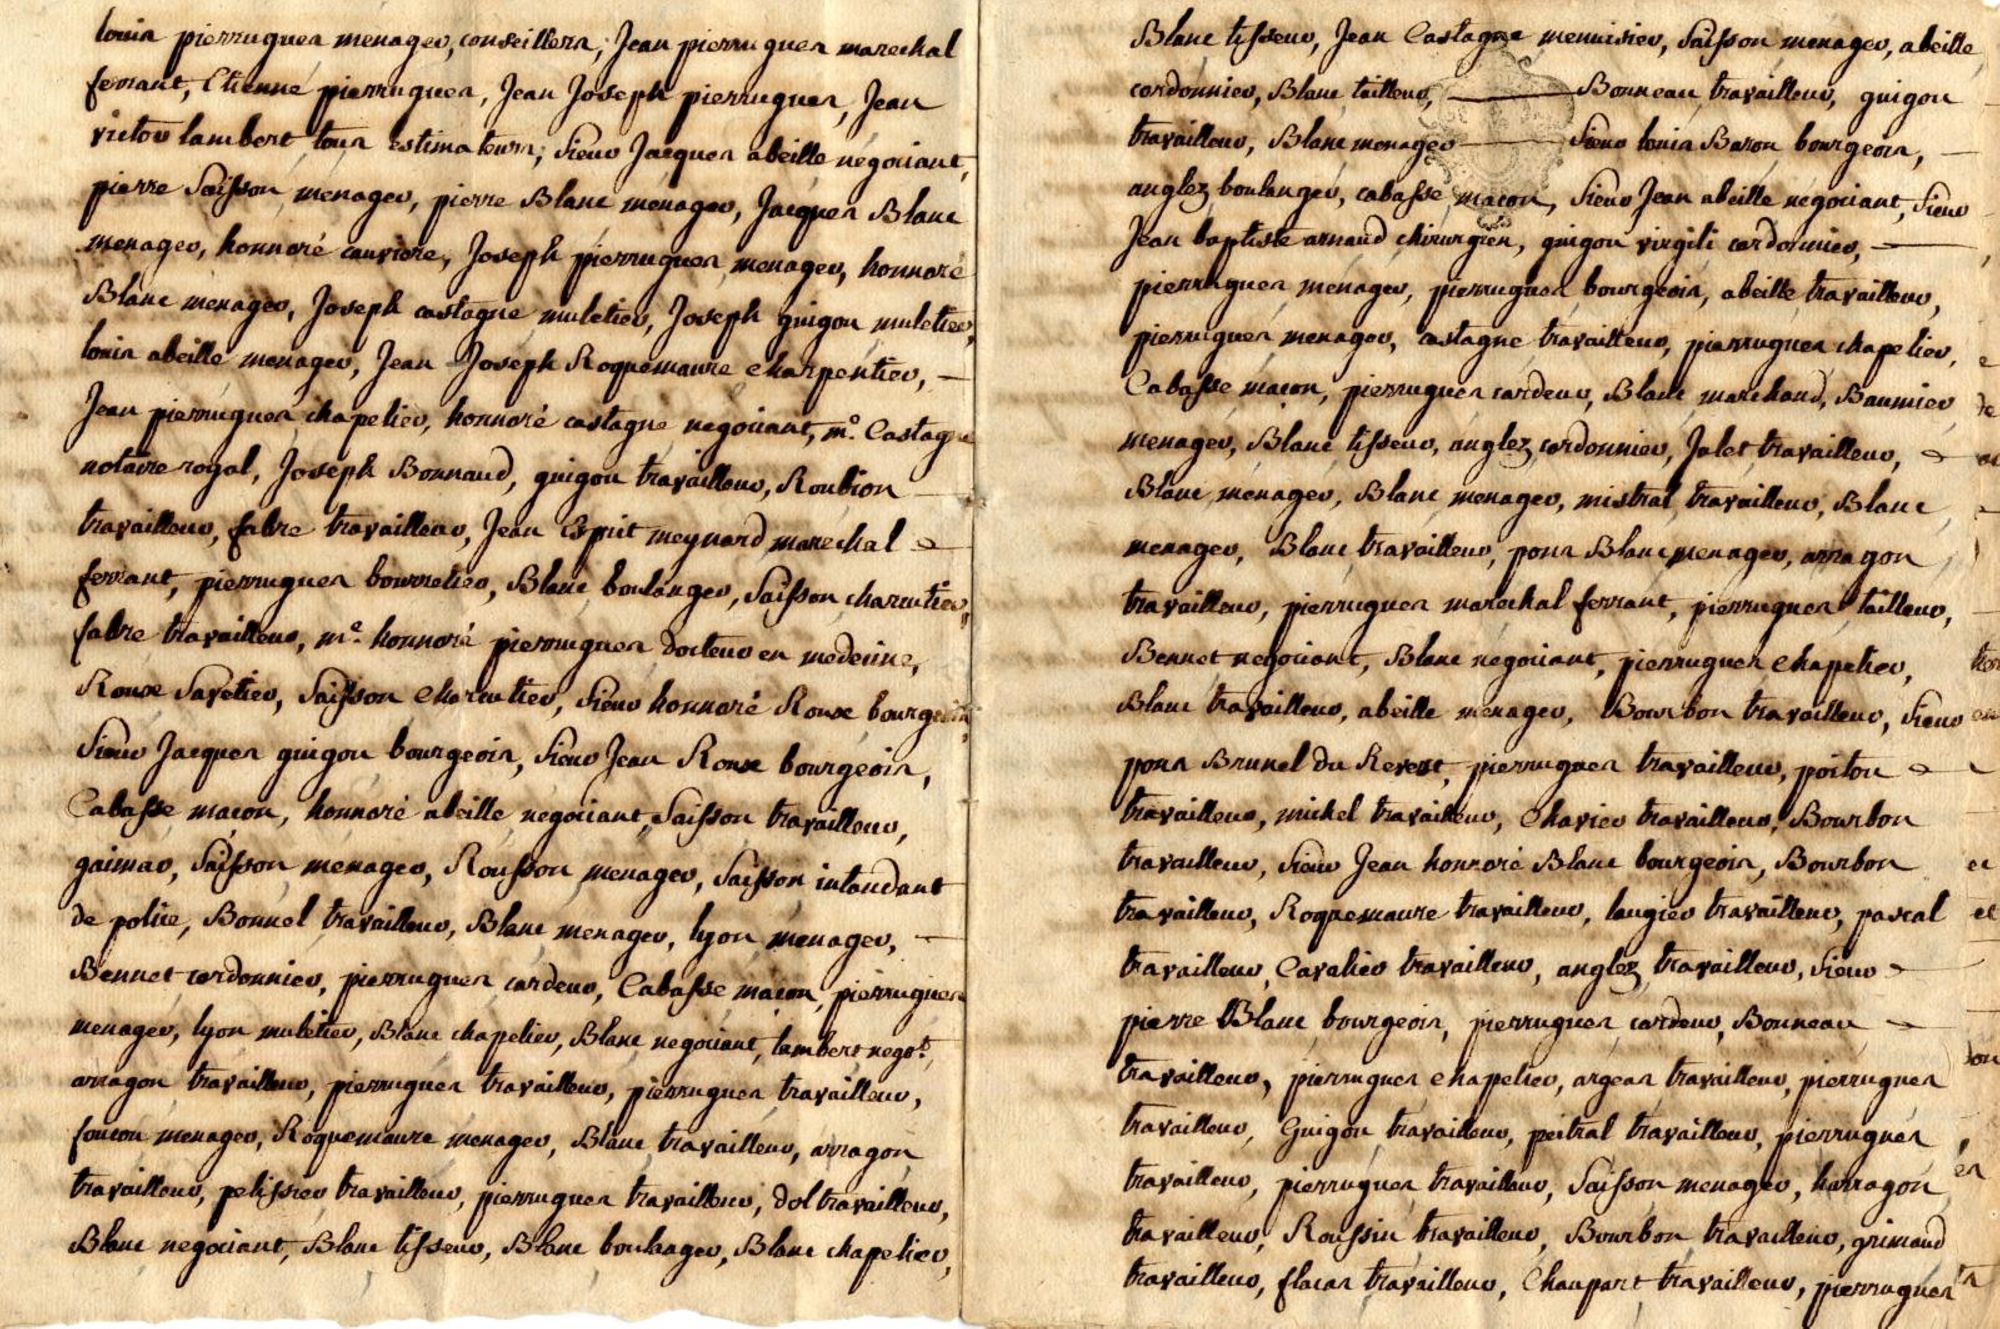 louis pierrugues menager, conseillers, Jean pierrugues marechal
ferrant, Etienne pierrugues, Jean Joseph pierrugues, Jean
victor lambert tous estimateurs, Sieur Jacques abeille negociant,
pierre Saisson menager, pierre Blanc menager, Jacques Blanc
menager, honnoré cauviere, Joseph pierrugues menager, honnoré
Blanc menager, Joseph castagne muletier, Joseph guigou muletier,
louis abeille menager, Jean Joseph Roquemaure charpentier,
Jean pierrugues chapelier, honnoré castagne negociant, me. Castagne
notaire royal, Joseph Bonnaud, guigou travailleur, Roubion
travailleur, fabre travailleur, Jean Esprit meynard marechal
ferrant, pierrugues bourrelier, Blanc boulanger, Saisson charcutier,
fabre travailleur, me. honnoré pierrugues docteur en medecine,
Roux Savetier, Saisson charcutier, Sieur honnoré Roux bourgeois,
Sieur Jacques guigou bourgeois, Sieur Jean Roux bourgeois,
Cabasse macon, honnoré abeille negociant, Saisson travailleur,
gaimar, Saisson menager, Rousson menager, Saisson intandant
de police, Bonnel travailleur, Blanc menager, lyon menager,
Bennet cordonnier, pierrugues cardeur, Cabasse macon, pierrugues
menager, lyon muletier, Blanc chapelier, Blanc negociant, lambert negot.,
arragon travailleur, pierrugues travailleur, pierrugues travailleur,
foucou menager, Roquemaure menager, Blanc travailleur, arragon
travailleur, pelissier travailleur, pierrugues travailleur, dol travailleur,
Blanc negociant, Blanc tisseur, Blanc boulanger, Blanc chapelier,
Blanc tisseur, Jean Castagne menuisier, Saisson menager, abeille
cordonnier, Blanc tailleur, Bonneau travailleur, guigou
travailleur, Blanc menager Sieur louis Baron bourgeois,
anglez boulanger, cabasse macon, Sieur Jean abeille negociant, Sieur
Jean baptiste arnaud chirurgien, guigou virgili cordonnier,
pierrugues menager, pierrugues bourgeois, abeille travailleur,
pierrugues menager, castagne travailleur, pierrugues chapelier,
Cabasse macon, pierrugues cardeur, Blanc marchand, Baumier
menager, Blanc tisseur, anglez cordonnier, Jalet travailleur,
Blanc menager, Blanc menager, mistral travailleur, Blanc
menager, Blanc travailleur, pons Blanc menager, arragon
travailleur, pierrugues marechal ferrant, pierrugues tailleur,
Bennet negociant, Blanc negociant, pierrugues chapelier,
Blanc travailleur, abeille menager, Bourbon travailleur, Sieur
pons Brunel du Revest, pierrugues travailleur, poitou
travailleur, michel travailleur, Chavier travailleur, Bourbon
travailleur, Sieur Jean honnoré Blanc bourgeois, Bourbon
travailleur, Roquemaure travailleur, laugier travailleur, pascal
travailleur, Cavalier travailleur, anglez travailleur, Sieur
pierre Blanc bourgeois, pierrugues cardeur, Bonneau
travailleur, pierrugues chapelier, argeas travailleur, pierrugues
travailleur, Guigou travailleur, peitral travailleur, pierrugues
travailleur, pierrugues travailleur, Saisson menager, harragon
travailleur, Roussin travailleur, Bourbon travailleur, grimaud
travailleur, flacas travailleur, Chaupart travailleur, pierrugues